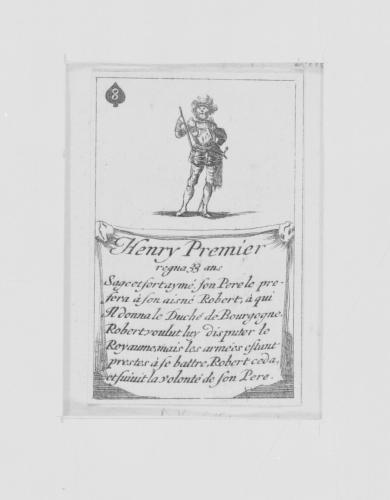 8
Henry Premier
regna 28 ans
Sage et fort aymé, son Pere le pre-
fera à son aisné Robert, à qui
Il donna le Duché de Bourgogne.
Robert voulut luy disputer le
Royaume, mais les armées estant
prestes à se battre, Robert ceda,
et suiuit la volonté de son Pere.